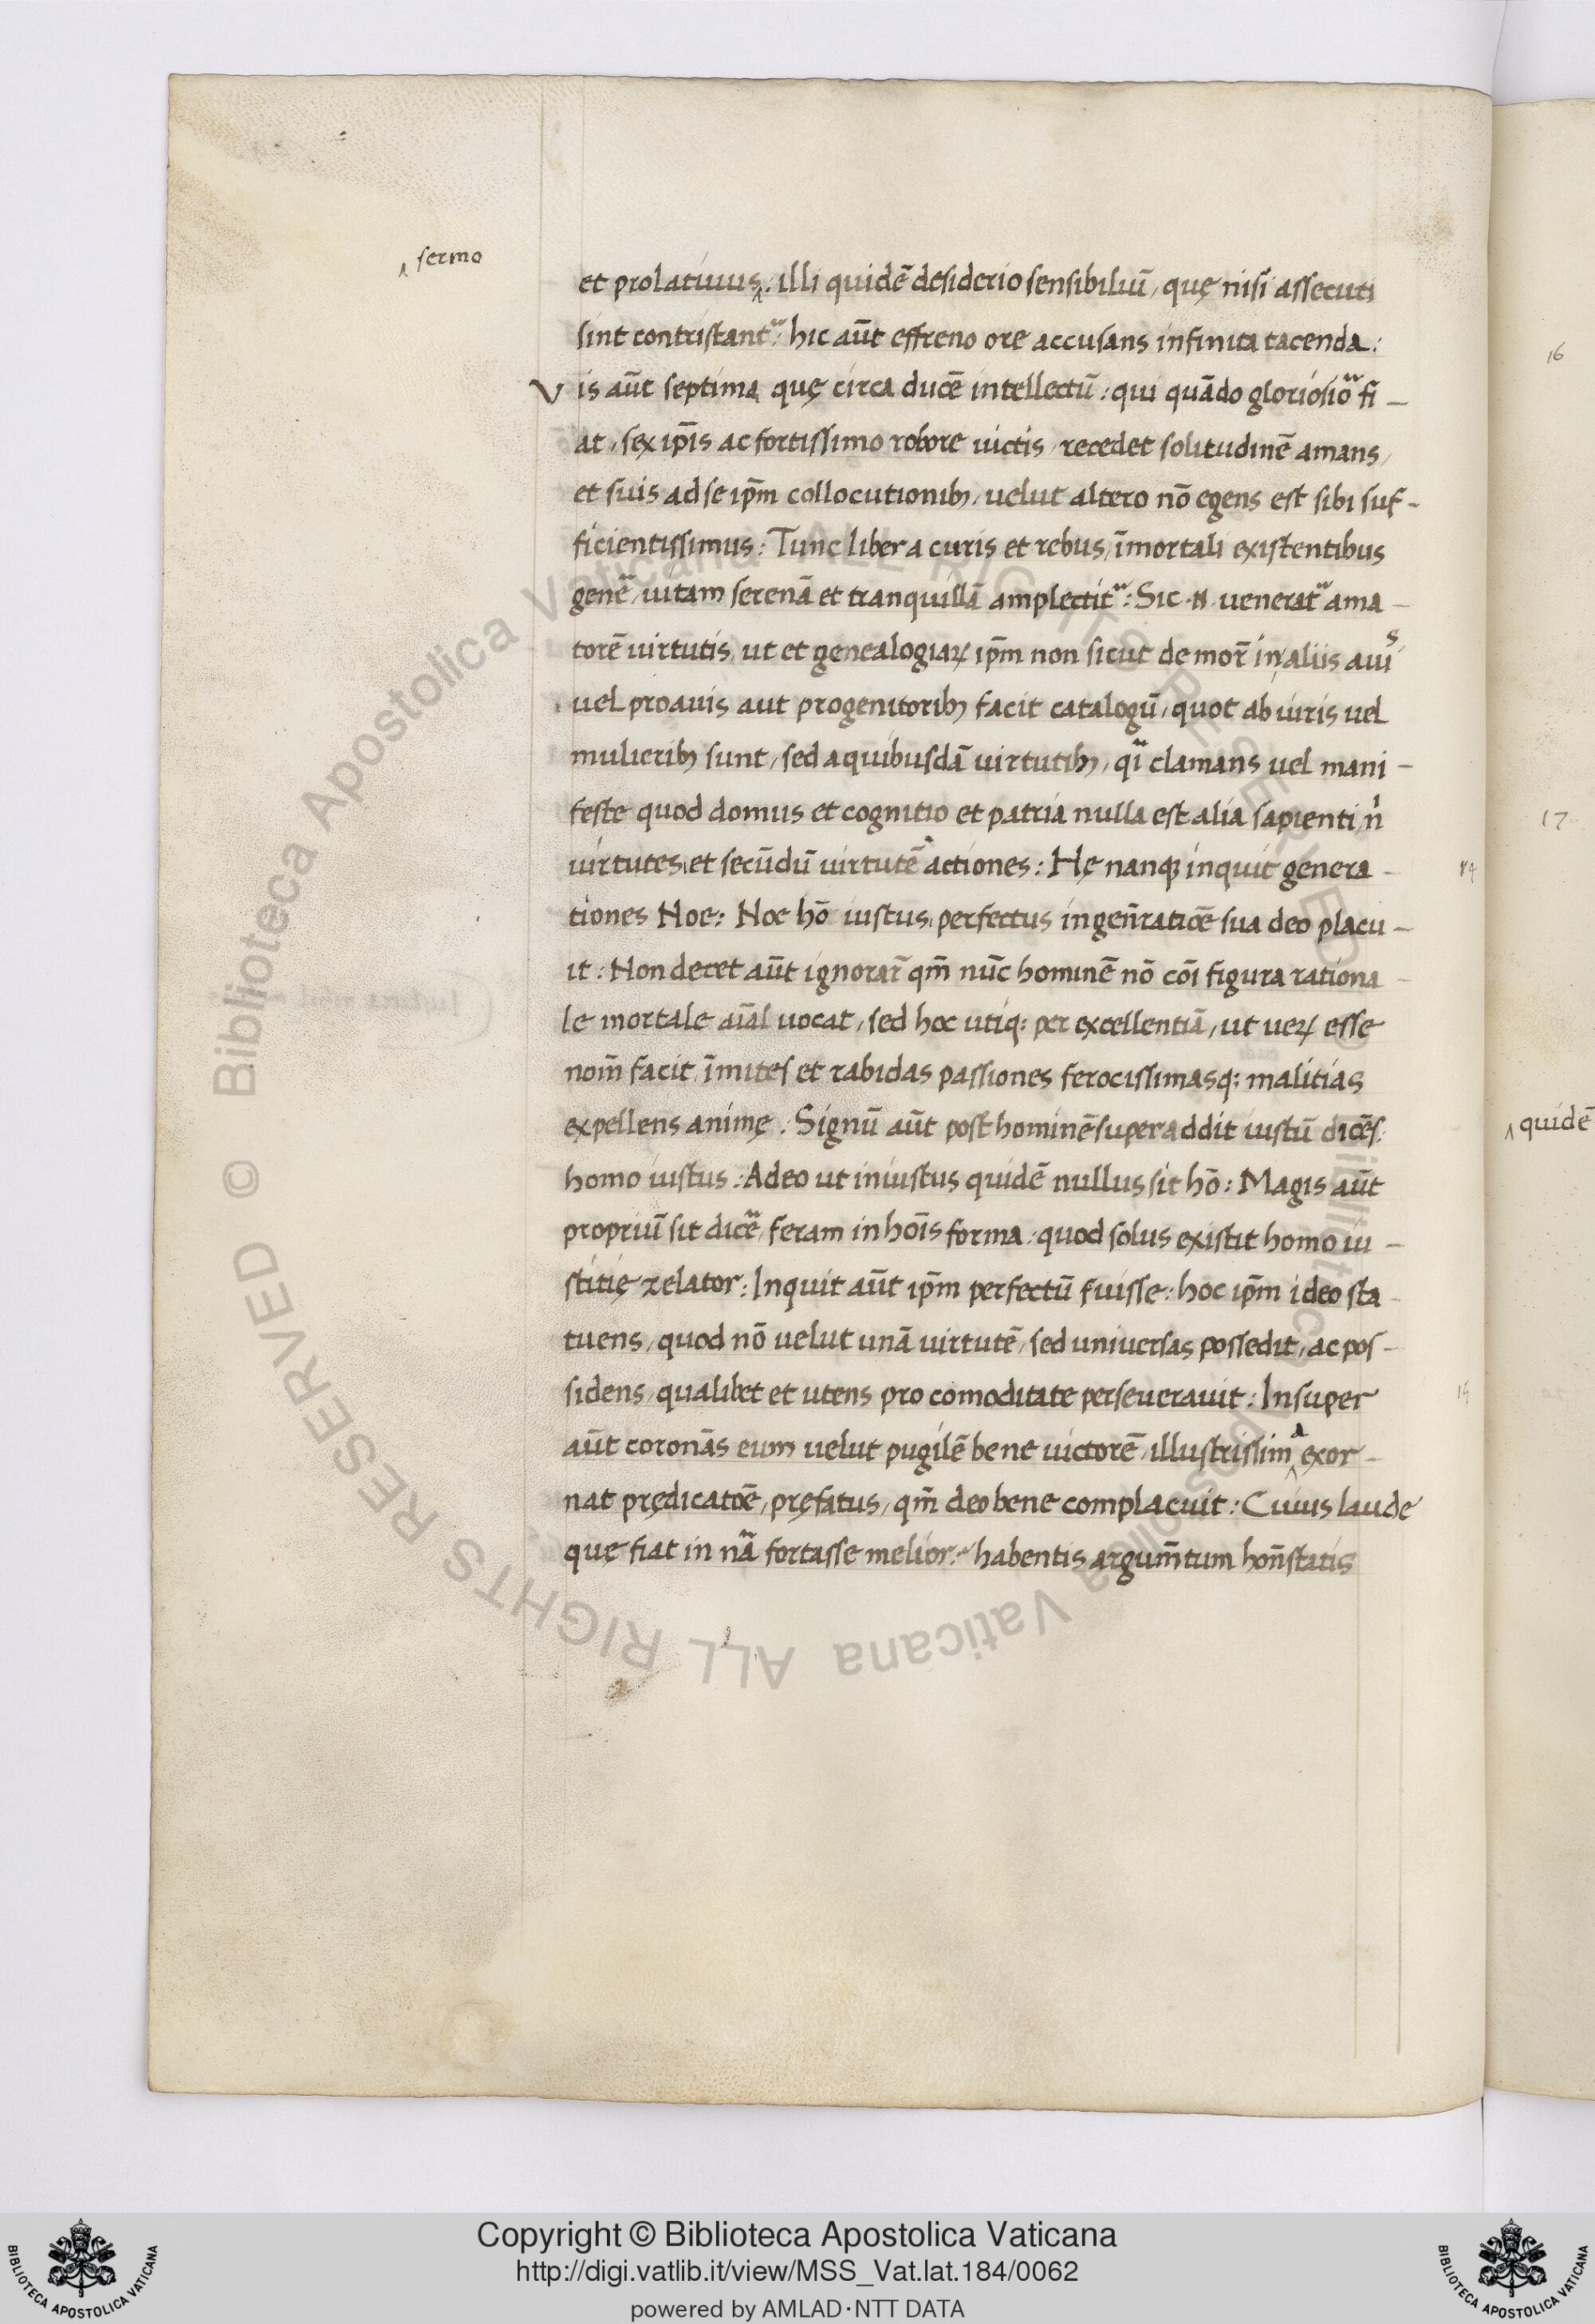 ‸ sermo
et prolatiuus‸: illi quidē desiderio sensibiliū, quę nisi assecuti
sint contristantᷣ: hic aūt effreno ore accusans infinita tacenda:
Vis aūt septima quę circa ducē intellectū: qui quādo gloriosioᷣ fi-
at, sex ip̄is ac fortissimo robore uictis, recedet solitudinē amans,
et suis ad se ip̄m collocutionibꝫ, uelut altero nō egens est sibi suf-
ficientissimus: Tunc liber a curis et rebus, īmortali existentibus
geneᷓ, uitam serenā et tranquillā amplectitᷣ: Sic .N. ueneratᷣ ama-
torē uirtutis, ut et genealogiaꝝ ip̄m non sicut de mor̄ in aliis auiˢ
uel proauis aut progenitoribꝫ facit catalogū, quot ab uiris uel
mulieribꝫ sunt, sed a quibusdā uirtutibꝫ, qᷓi clamans uel mani-
feste quod domus et cognitio et patria nulla est alia sapienti, nͥ
uirtutes, et secūdū uirtutē actiones: Hę nanqꝫ inquit genera-
tiones Noe: Noe hō iustus, perfectus in gen̄ratiōe sua deo placu-
it: Non decet aūt ignorar̄ qm̄ nūc hominē nō cōi figura rationa-
le mortale aīal uocat, sed hoc utiqꝫ per excellentiā, ut ueꝝ esse
nom̄ facit, īmites et rabidas passiones ferocissimasqꝫ malitias
expellens animę. Signū aūt post hominē superaddit iustū dicēs:
homo iustus: Adeo ut iniustus quidē nullus sit hō: Magis aūt
propriū sit diceᷓ, feram in hōis forma: quod solus existit homo iu-
stitię zelator: Inquit aūt ip̄m perfectū fuisse: hoc ip̄m ideo sta-
tuens, quod nō uelut unā uirtutē, sed uniuersas possedit, ac pos-
sidens, qualibet et utens pro comoditate perseuerauit: Insuper
aūt coronās eum uelut pugilē bene uictorē, illustrissim‸ᵃ exor-
nat prędicatōe, pręfatus, qm̄ deo bene complacuit: Cuius laude
quę fiat in nᷓa fortasse melior: habentis argum̄tum hon̄statis
16
17
‸ quidē
Copyright © Biblioteca Apostolica Vaticana
http://digi.vatlib.it/view/MSS_Vat.lat.184/0062
powered by AMLAD·NTT DATA
BIBLIOTECA APOSTOLICA VATICANA
BIBLIOTECA APOSTOLICA VATICANA
© Biblioteca Apostolica Vaticana ALL RIGHTS RESERVED
© Biblioteca Apostolica Vaticana ALL RIGHTS RESERVED